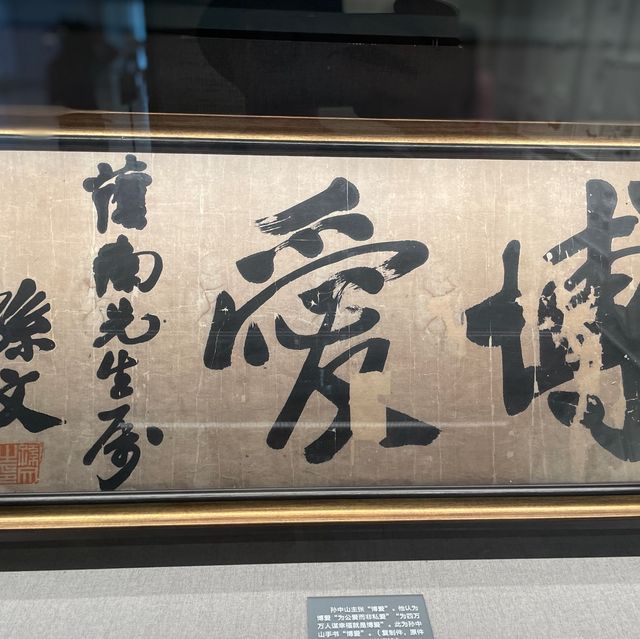 博愛
南先生属
孫文
孙中山主张“博爱”。他认为
博爱“为公爱而非私爱”“为四万
万人谋幸福就是博爱”。此为孙中
山手书“博爱”。（复制件，原件